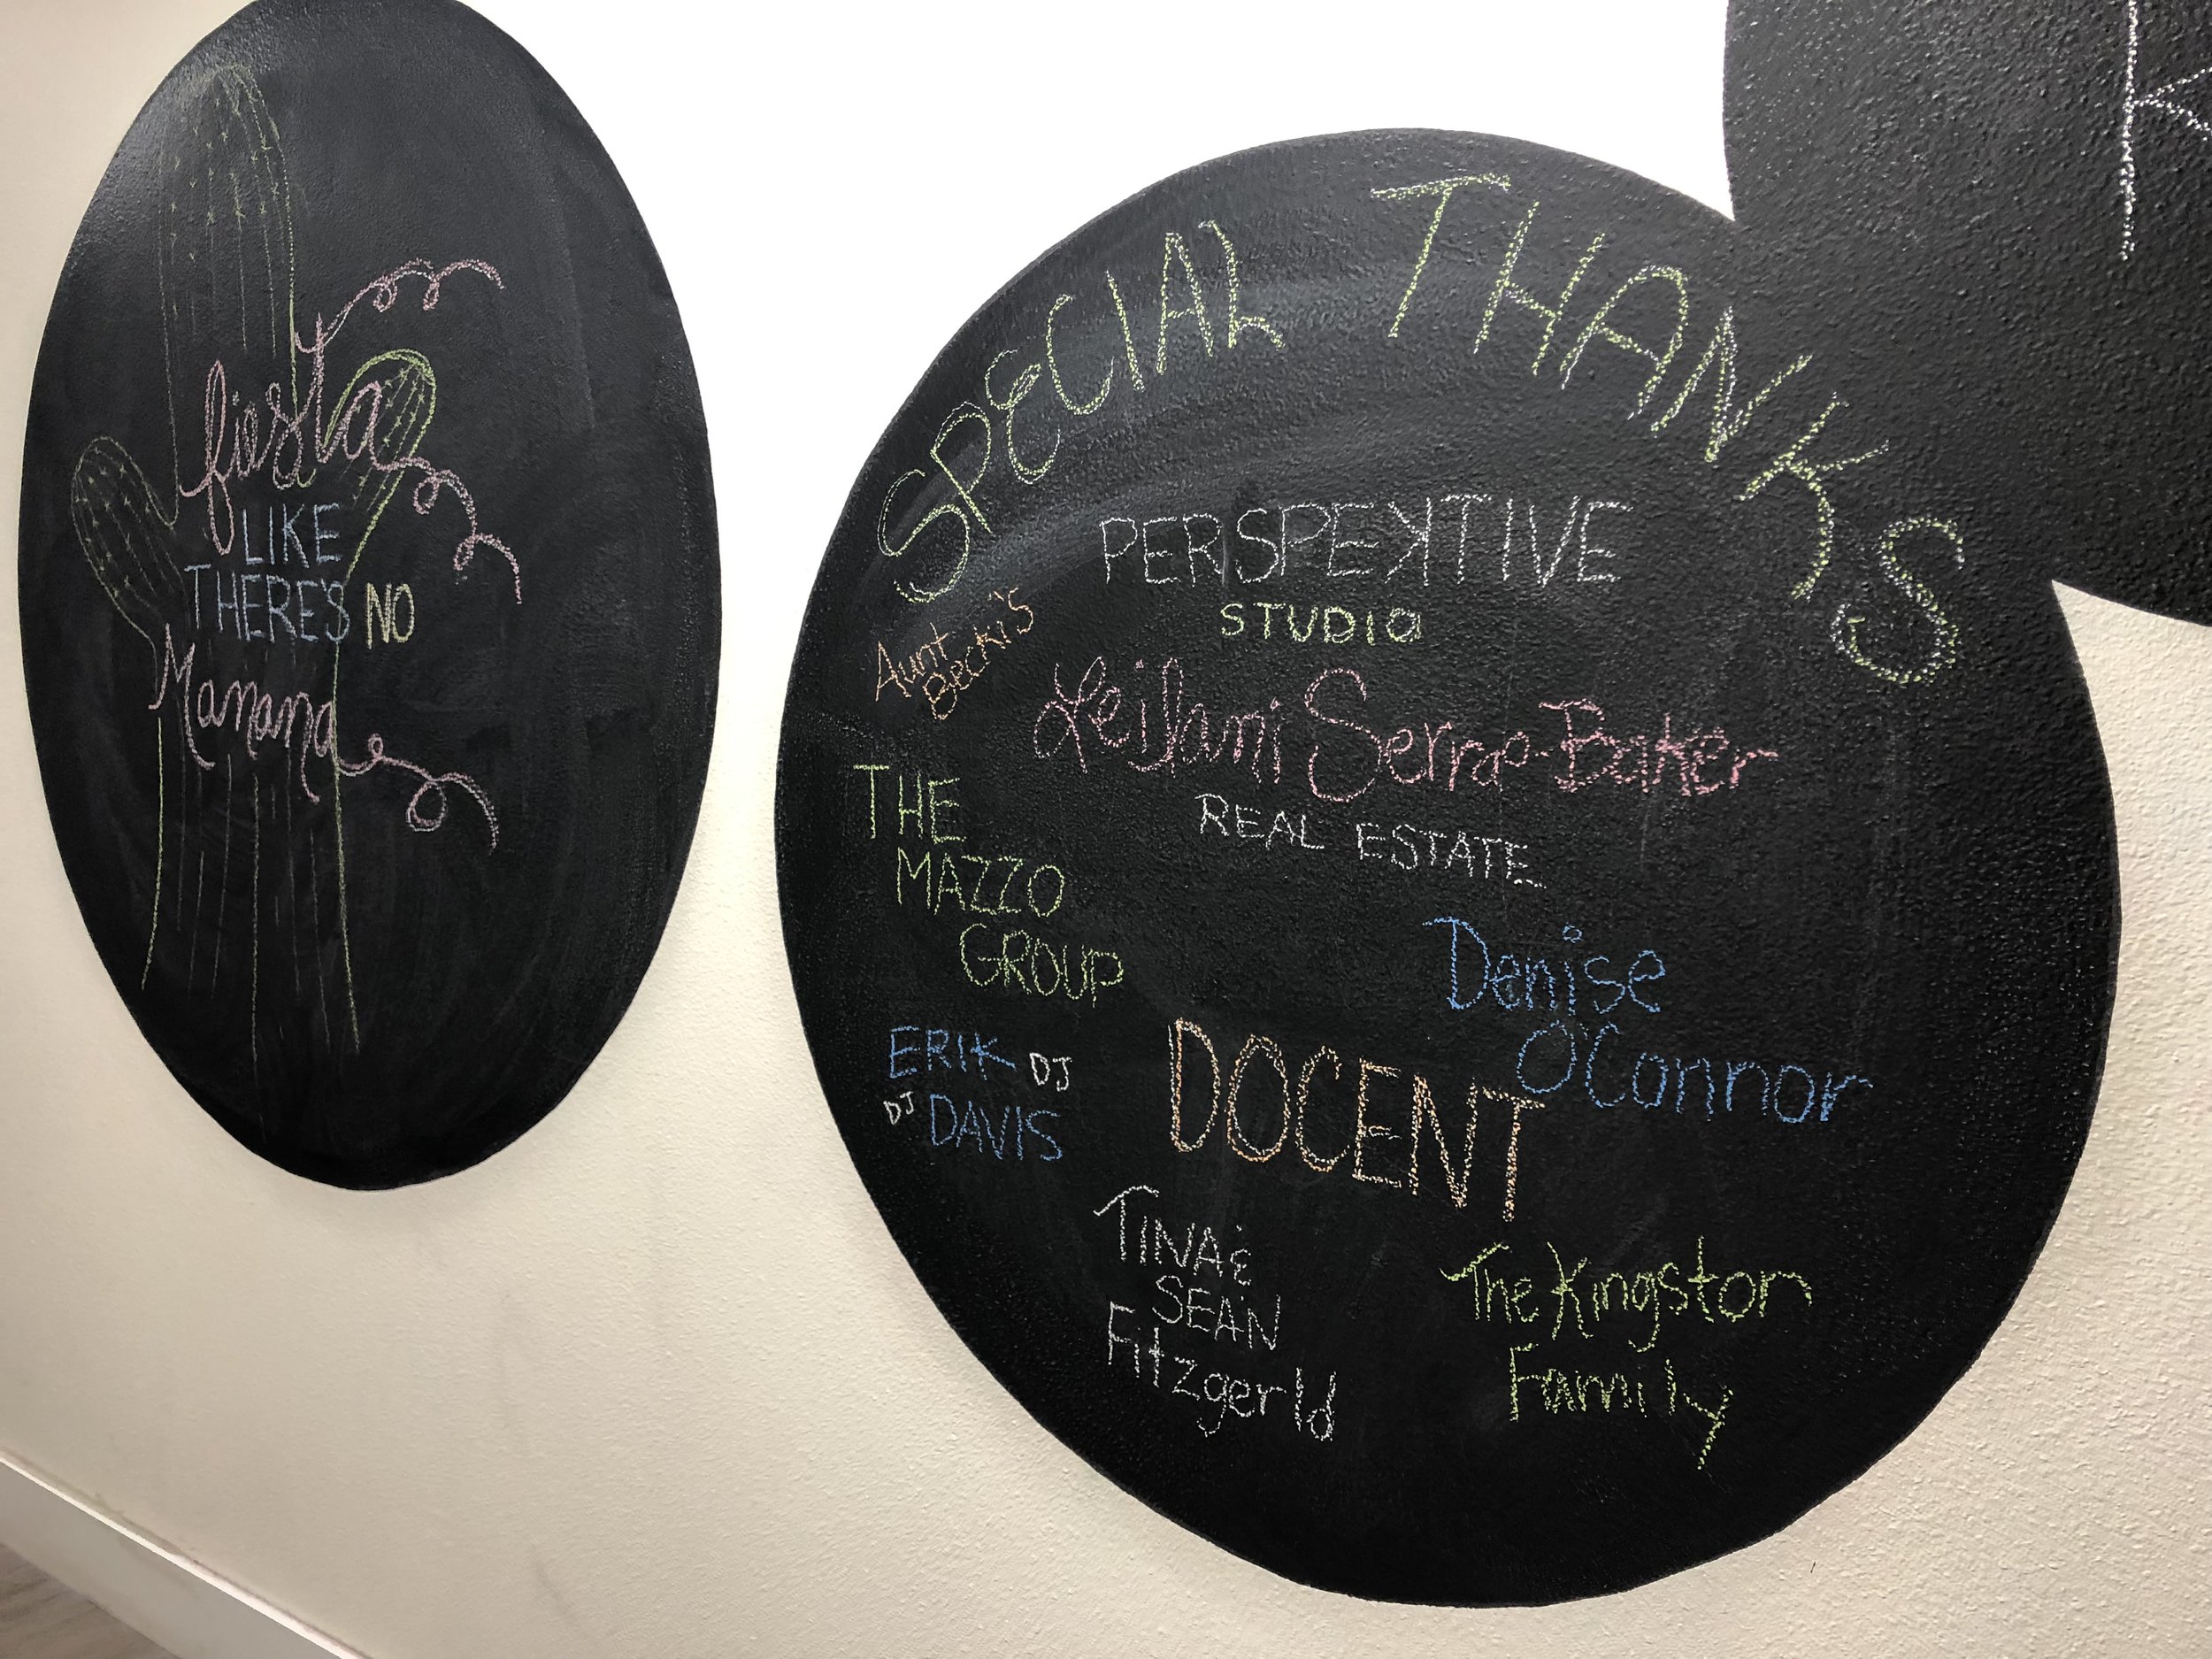 fiesta
LIKE
THERE'S NO
Manana
SPECIAL THANKS
PERSPEKTIVE
STUDIO
Aunt
Becki's
Leilani Serrao-Baker
REAL ESTATE
THE
MAZZO
GROUP
Denise
O'Connor
ERIK DJ
DJ DAVIS
DOCENT
TINA &
SEAN
Fitzgerld
The Kingston
Family
K